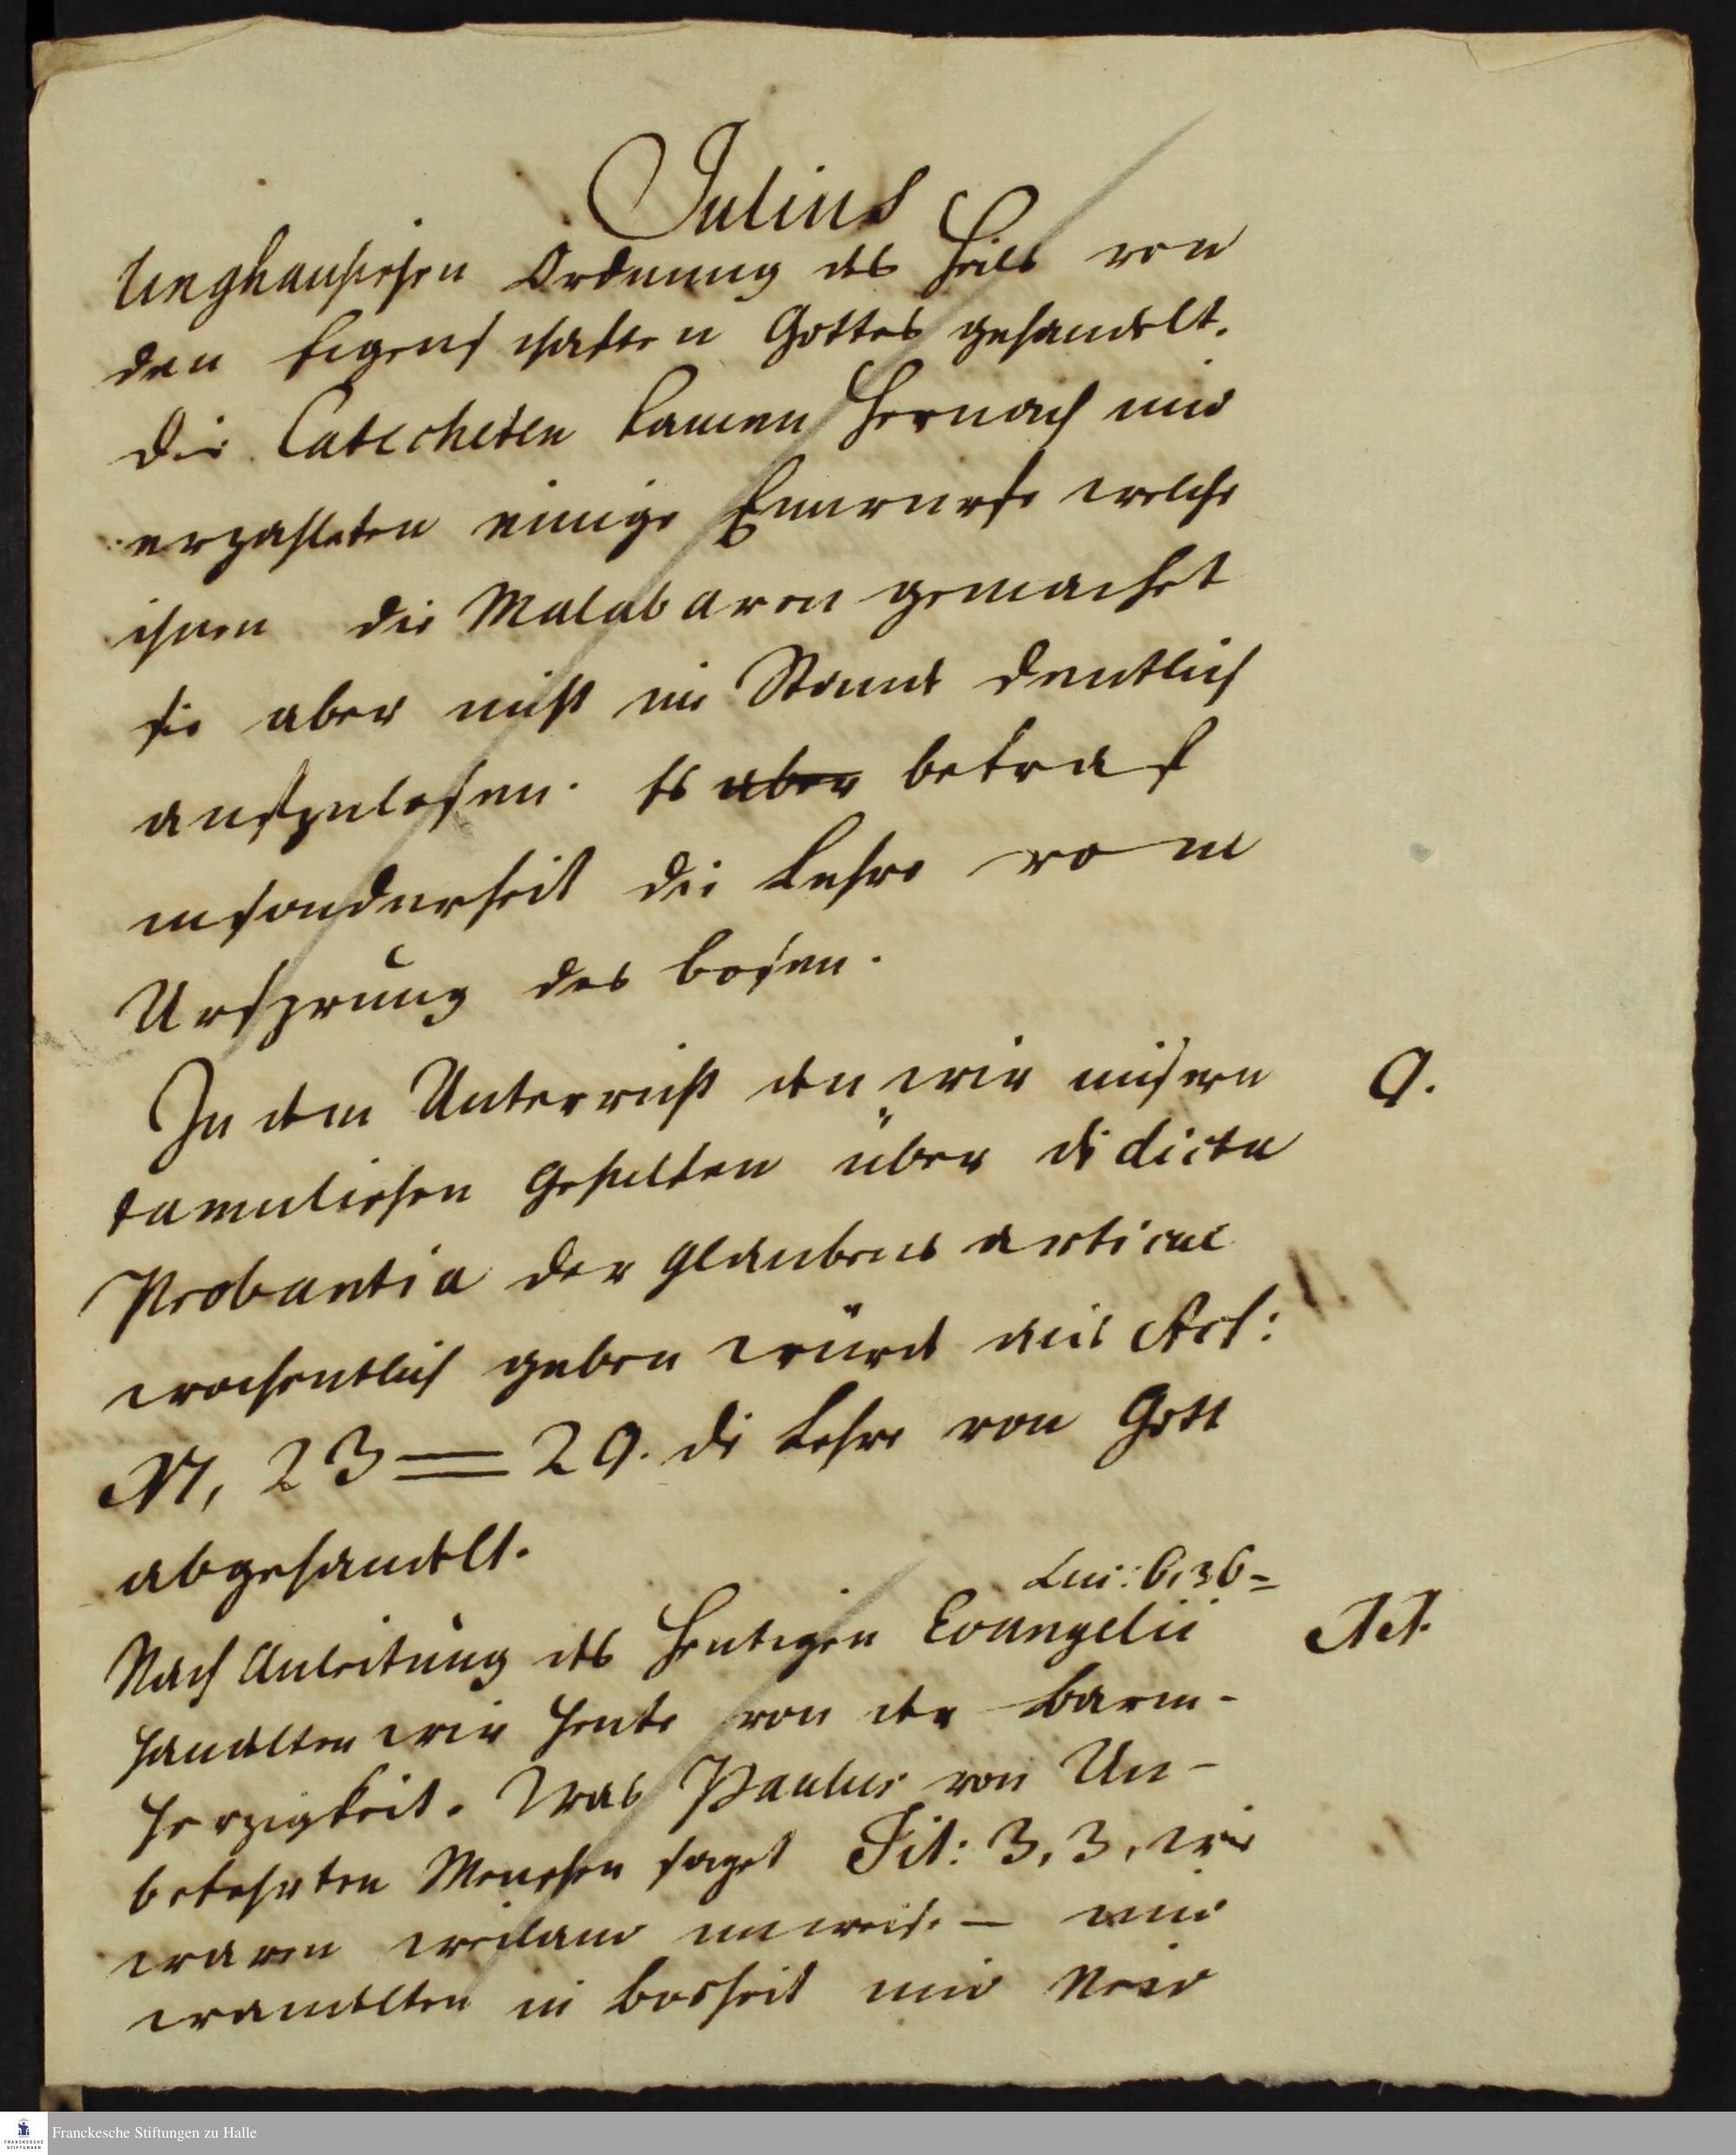 Julius
linghausischen Ordnung des Heils von
den Eigenschafften Gottes gehandelt.
Die Catecheten kamen hernach und
erzahleten einige Einwurfe welche
ihnen die Malabaren gemachet
sie aber nicht im Stande deutlich
aufzulosen. Es aber betraf
insonderheit die Lehre vom
Ursprung des bosen.
In dem Unterricht den wir unsern 9.
tamulischen Gehulfen über die dicta
Probantia der Glaubens articul
wochentlich geben würde aus Act:
17, 23=29. die Lehre von Gott
abgehandelt.
Luc: 6, 36=
Nach Anleitung des heutigen Evangelii 11.
handelten wir heute von der Barm-
herzigkeit. Was Paulus von Un-
bekehrten Menschen saget Tit: 3, 3, wir
waren weiland unweise — und
wandelten in bosheit und Neid
Franckesche Stiftungen zu Halle